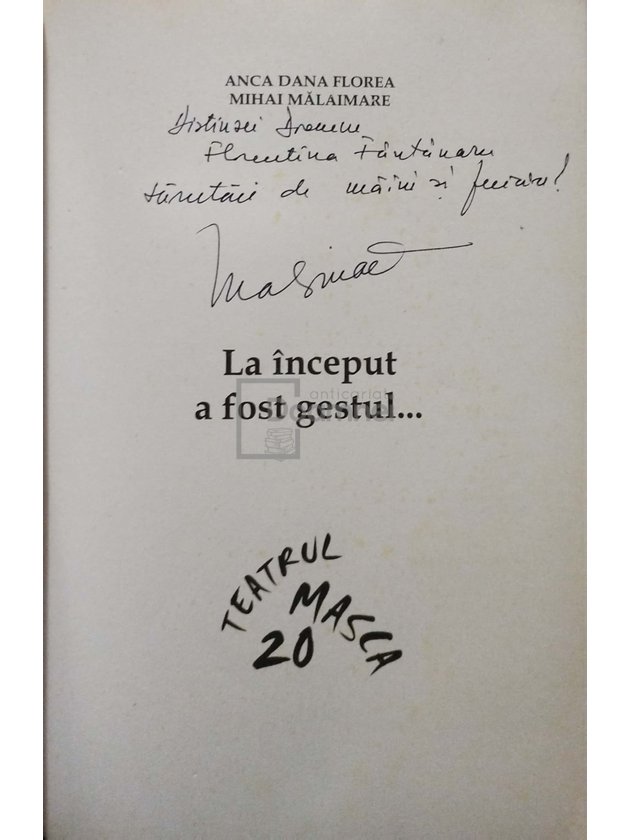 ANCA DANA FLOREA
MIHAI MĂLAIMARE
Distinsei Doamne
Florentina Fântânaru
sărutări de mâini și
La început
a fost gestul...
anticariat
TEATRUL
MASCA
20